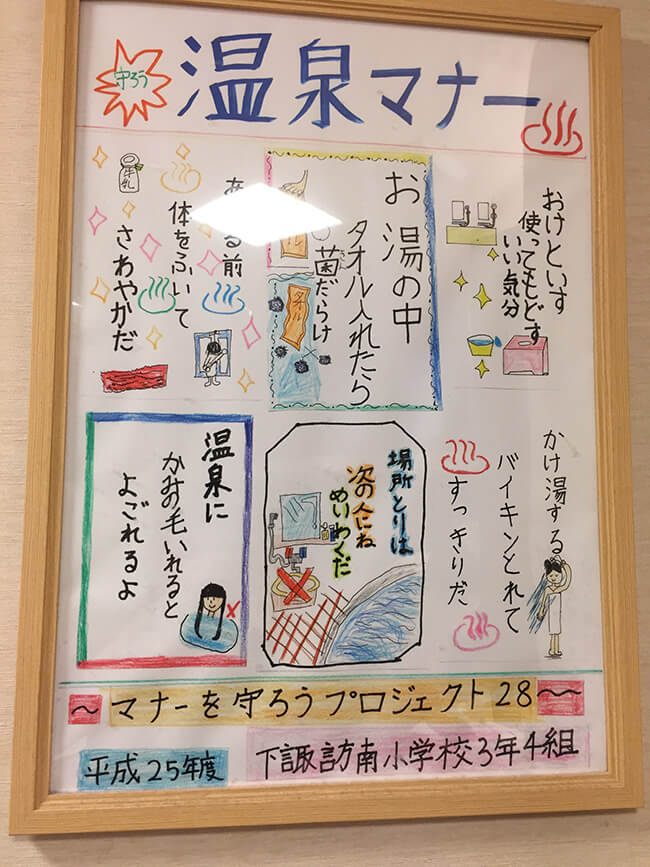 守ろう
温泉マナー
おけといす
使ってもどす
いい気分
お湯の中
タオル入れたら
菌だらけ
きん
タオル
あがる前
体をふいて
さわやかだ
牛乳
かけ湯する
バイキンとれて
すっきりだ
場所とりは
次の人にね
めいわくだ
温泉に
かみの毛いれると
よごれるよ
~マナーを守ろうプロジェクト28~
平成25年度
下諏訪南小学校3年4組